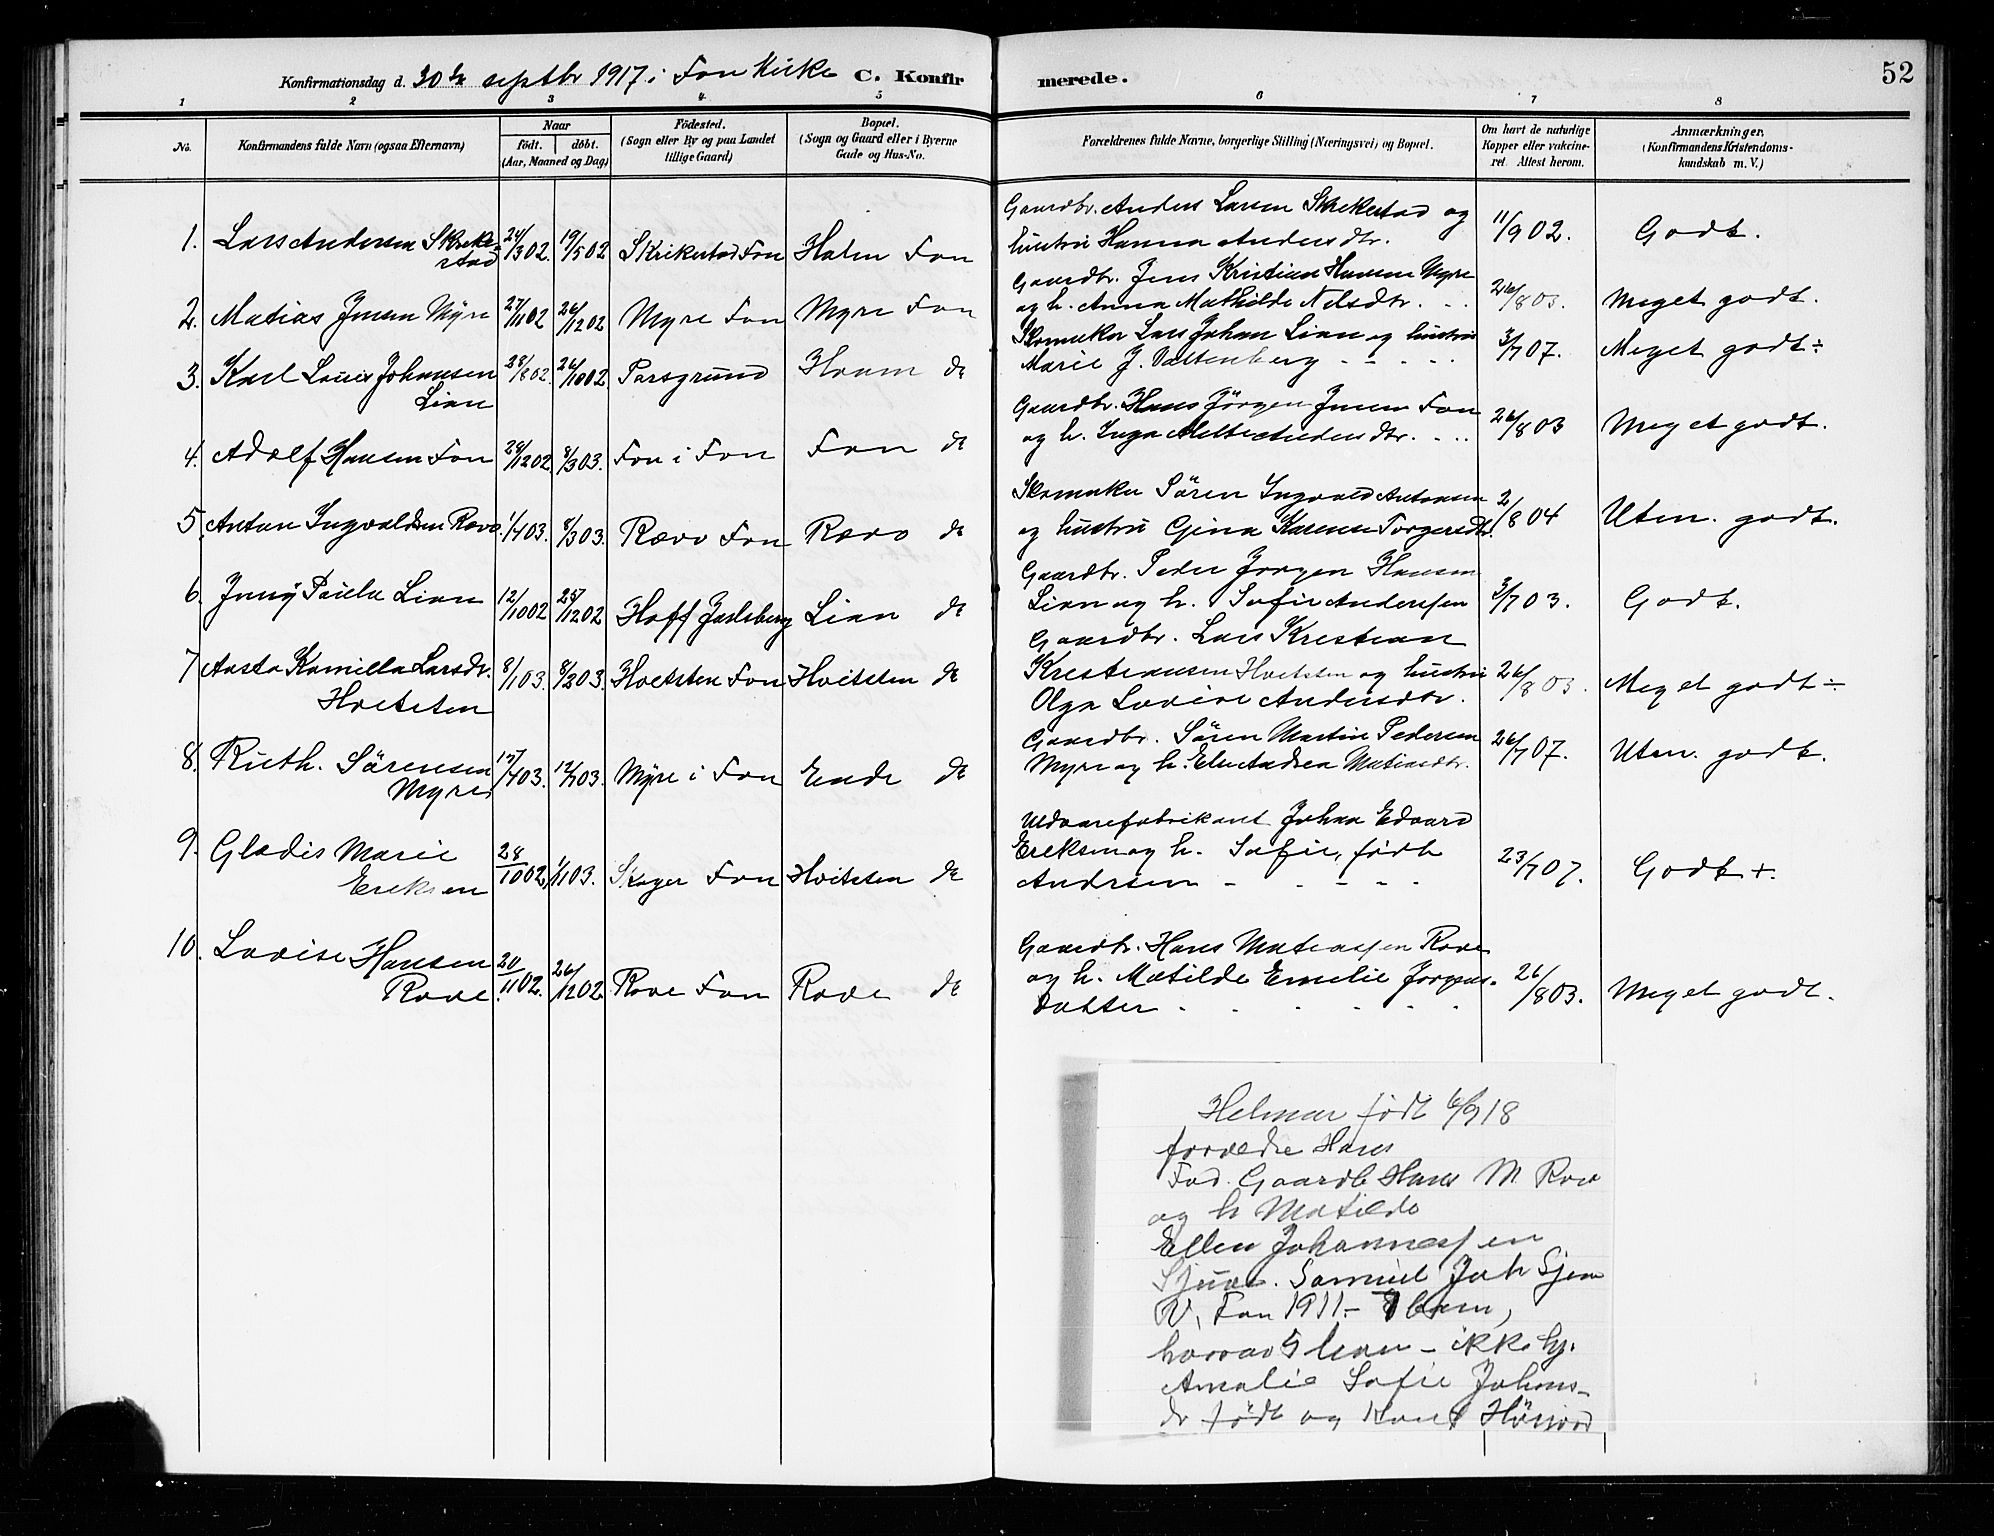 Konfirmationsdag d. 30te septbr 1917 i Fon Kirke C. Konfir
merede. 52
1 2 3 4. 5 6 7 8
No. Konfirmandens fulde Navn (ogsaa Efternavn) Naar født. døbt. (Aar, Maaned og Dag) Fødested. (Sogn eller By og paa Landet tillige Gaard) Bopæl. (Sogn og Gaard eller i Byerne Gade og Hus-No.
Forældrenes fulde Navne, borgerlige Stilling (Næringsvei) og Bopæl. Om havt de naturlige Kopper eller vakcineret. Attest herom. Anmærkninger. (Konfirmandens Kristendomskundskab m. V.)
1. Lars Andersen Skrikestad 24/3 02. 19/5 02 Skrikestad Fon Holm Fon
Gaardbr. Anders Larsen Skrikestad og
hustru Hanna Andersdtr. 11/9 02. Godt.
2. Matias Jensen Myre 27/11 02 26/12 02 Myre Fon Myre Fon
Gaardbr. Jens Kristian Hansen Myre
og h. Anna Mathilde Nilsdtr. 26/8 03. Meget godt.
3. Karl Louis Johansen Lian 28/8 02. 26/10 02 Porsgrund Hvam do
Skomaker Lars Johan Lian og hustru
Marie J. Valtenberg 3/7 07. Meget godt ÷
4. Adolf Hansen Fon 29/12 02. 8/3 03. Fon i Fon Fon do
Gaardbr. Hans Jörgen Jensen Fon
og h. Inga Andersdtr. 26/8 03 Meget godt.
5. Anton Ingvaldsen Rævo 1/1 03. 8/3 03. Rævo Fon Rævo do
Skomaker Sören Ingvald Antonsen
og hustru Gina Karense Torgersdtr. 2/8 04 Utm. godt.
6. Jenny Paula Lian 12/10 02 25/12 02 Hoff Jarlsberg Lian do
Gaardbr. Peder Jorgen Hansen
Lian og h. Sofie Anderssen 3/7 03. Godt.
7 Aasta Kamilla Larsdr. Hvitsten 8/1 03. 8/2 03. Hvitsten Fon Hvitsten do
Gaardbr. Lars Kristian
Kristiansen Hvitsten og hustru
Olga Lovise Andersdtr. 26/8 03. Meget godt ÷
8. Ruth. Sörensen Myre 15/4 03. 12/7 03. Myre i Fon Ende do
Gaardbr. Sören Martin Pedersen
Myre og h. Andrea Matiasdtr. 26/7 07. Utm. godt.
9. Gladis Marie Eriksen 28/10 02 1/1 03. Skoger Fon Hvitsten do
Uldvarefabrikant Johan Edvard
Eriksen og h. Sofie, född
Andrsen 23/7 07. Godt +.
10. Lovise Hansen Rove. 20/11 02. 26/12 02. Rove Fon Rove do
Gaardbr. Hans Matiassen Rove
og h. Matilde Emelie Jorgens-
datter 26/8 03. Meget godt.
Helmar född 6/9 18
forældre Hans
Fad. Gaardb Hans M Rove
og h Matilde
Ellen Johannessen
Samuel Joh
V. Fon 1911 - barn,
horav 5 lever - ikke hj.
Amalie Sofie Johans-
dr född og